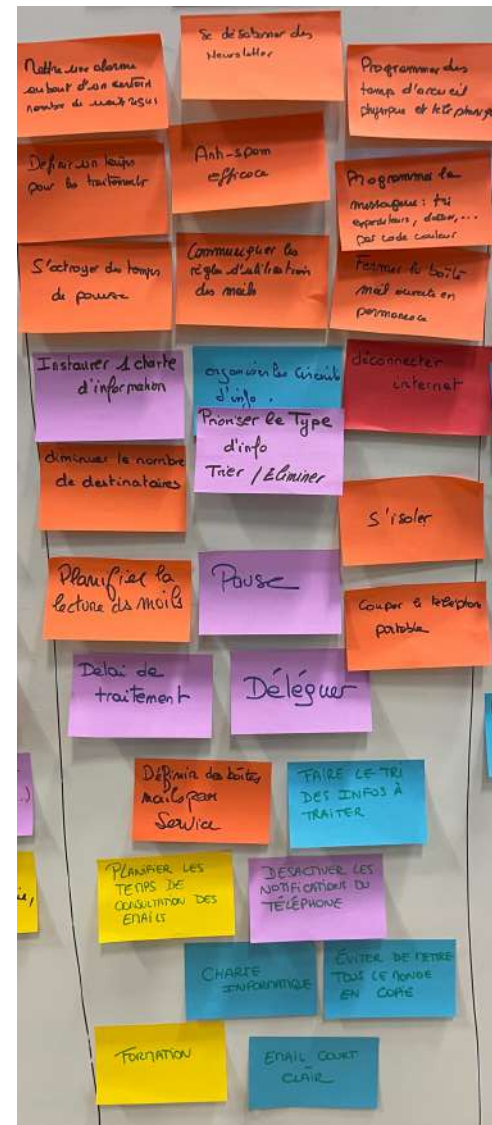 Mettre une alarme
au bout d'un certain
nombre de mails reçus
Se désabonner des
Newsletter
Programmer des
temps d'accueil
physique et téléphonique
Définir un temps
pour les traitements
Anti-spam
efficace
Programmer la
messagerie : tri
expéditeurs, dossier, ...
par code couleur
S'octroyer du temps
de pause
Communiquer les
règles d'utilisation
des mails
Fermer la boîte
mail ouverte en
permanence
Instaurer 1 charte
d'information
organiser les circuits
d'info.
déconnecter
internet
Prioriser le Type
d'info
Trier / Eliminer
diminuer le nombre
de destinataires
S'isoler
Planifier la
lecture ds mails
Pause
Couper le téléphone
portable
Delai de
traitement
Déléguer
Définir des boîtes
mails par
Service
FAIRE LE TRI
DES INFOS À
TRAITER
PLANIFIER LES
TEMPS DE
CONSULTATION DES
EMAILS
DÉSACTIVER LES
NOTIFICATIONS DU
TÉLÉPHONE
CHARTE
INFORMATIQUE
ÉVITER DE METTRE
TOUS LE MONDE
EN COPIE
FORMATION
EMAIL COURT
CLAIR